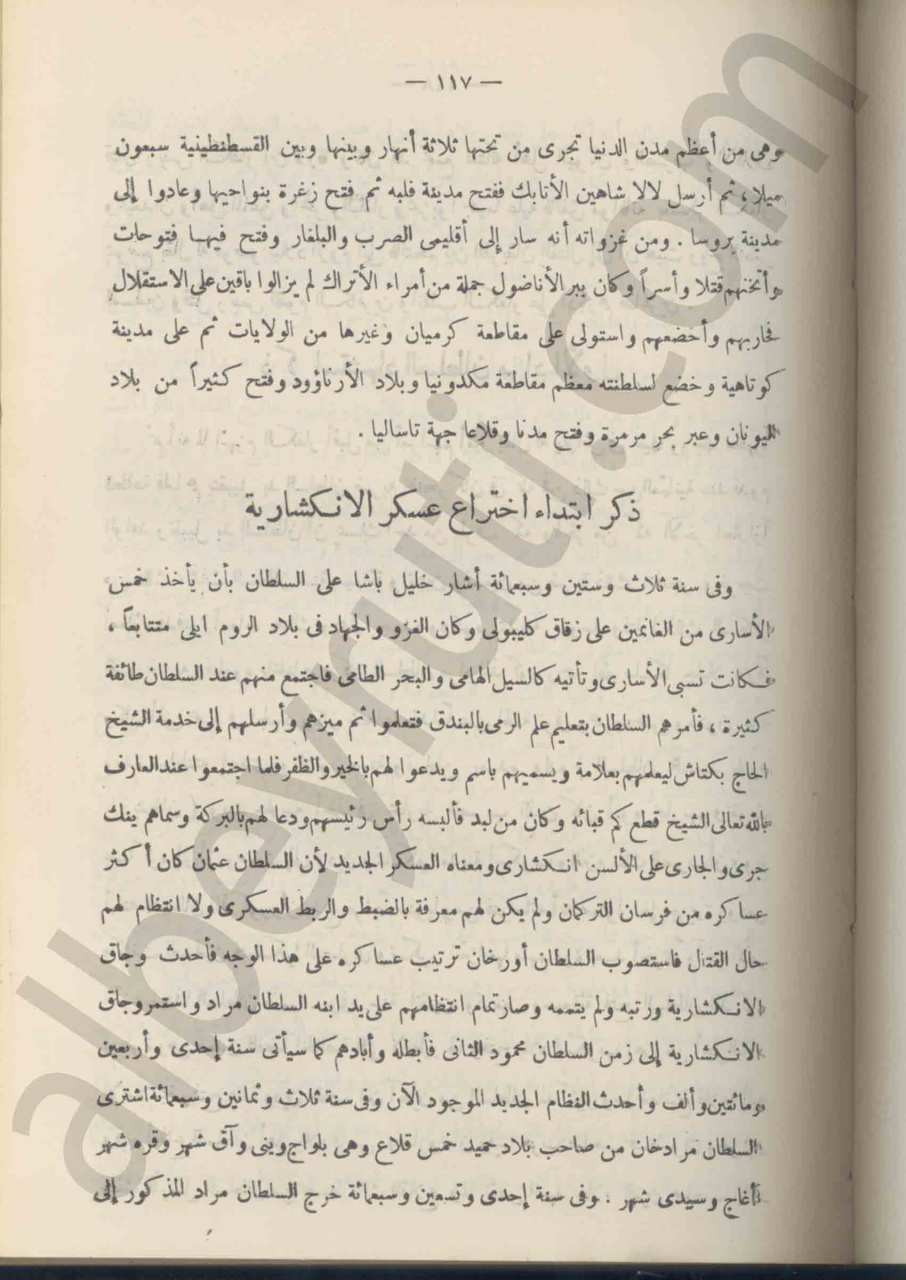 — ١١٧ —
وهى من أعظم مدن الدنيا تجرى من تحتها ثلاثة أنهار وبينها وبين القسطنطينية سبعون
ميلا، ثم أرسل لالا شاهين الأنابك ففتح مدينة فلبه ثم فتح زغرة بنواحيها وعادوا إلى
مدينة بروسا . ومن غزواته أنه سار إلى أقليمى الصرب والبلغار وفتح فيهـا فتوحات
وأثخنهم قتلا وأسراً وكان ببر الأناضول جملة من أمراء الأتراك لم يزالوا باقين على الاستقلال
فحاربهم وأخضعهم واستولى على مقاطعة كرميان وغيرها من الولايات ثم على مدينة
كوتاهية وخضع لسلطنته معظم مقاطعة مكدونيا وبلاد الأرناؤود وفتح كثيراً من بلاد
اليونان وعبر بحر مرمرة وفتح مدنا وقلاعا جهة تاساليا .
ذكر ابتداء اختراع عسكر الانكشارية
وفى سنة ثلاث وستين وسبعمائة أشار خليل باشا على السلطان بأن يأخذ خمس
الأسارى من الغانمين على زقاق كليبولى وكان الغزو والجهاد فى بلاد الروم ايلى متتابعاً ،
فكانت تسبى الأسارى وتأتيه كالسيل الهامى والبحر الطامى فاجتمع منهم عند السلطان طائفة
كثيرة ، فأمرهم السلطان بتعليم علم الرمى بالبندق فتعلموا ثم ميزهم وأرسلهم إلى خدمة الشيخ
الحاج بكتاش ليعلمهم بعلامة ويسميهم باسم ويدعوا لهم بالخير والظفر فلما اجتمعوا عند العارف
بالله تعالى الشيخ قطع كم قبائه وكان من لبد فألبسه رأس رئيسهم ودعا لهم بالبركة وسماهم ينك
جرى والجارى على الألسن انكشارى ومعناه العسكر الجديد لأن السلطان عثمان كان أكثر
عساكره من فرسان التركمان ولم يكن لهم معرفة بالضبط والربط العسكرى ولا انتظام لهم
حال القتال فاستصوب السلطان أورخان ترتيب عساكره على هذا الوجه فأحدث وجاق
الانكشارية ورتبه ولم يتممه وصار تمام انتظامهم على يد ابنه السلطان مراد واستمر وجاق
الانكشارية إلى زمن السلطان محمود الثانى فأبطله وأبادهم كما سيأتى سنة إحدى وأربعين
ومائتين وألف وأحدث النظام الجديد الموجود الآن وفى سنة ثلاث وثمانين وسبعمائة اشترى
السلطان مرادخان من صاحب بلاد حميد خمس قلاع وهى بلواج وينى وآق شهر وقره شهر
آغاج وسيدى شهر . وفى سنة إحدى وتسعين وسبعمائة خرج السلطان مراد المذكور إلى
albeyruti.com